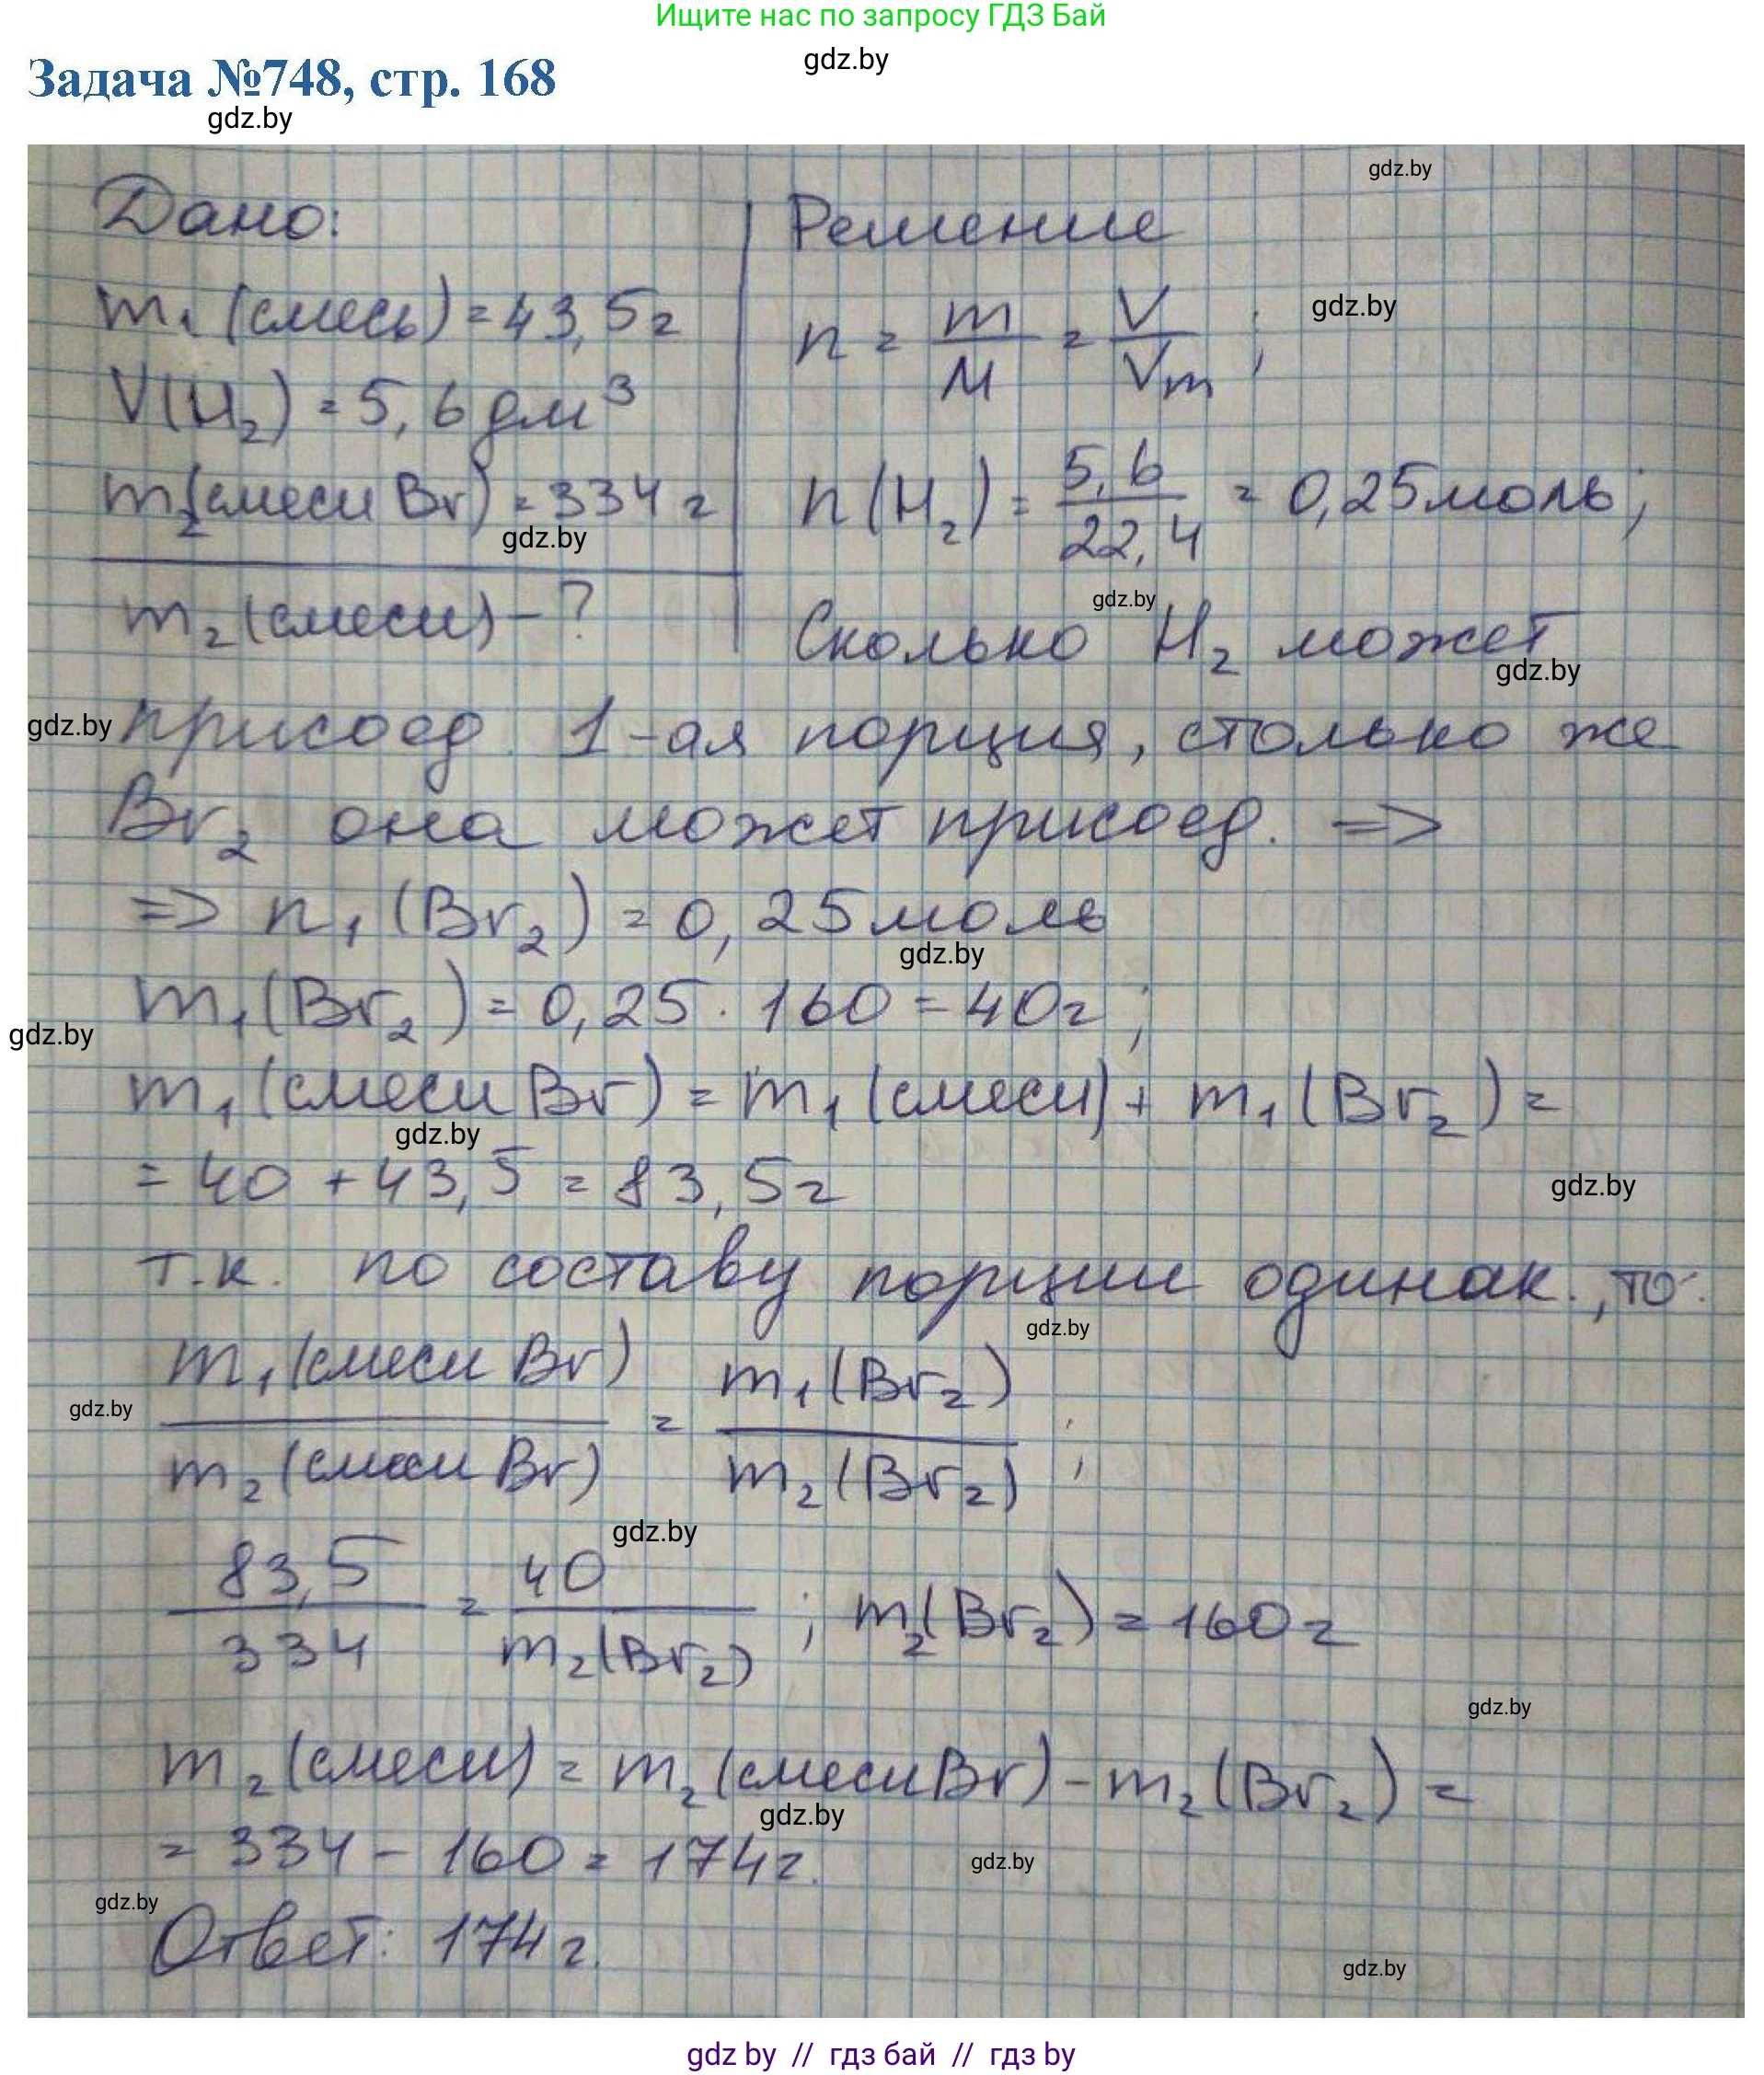 Ищите нас по запросу ГДЗ Бай
gdz.by
Задача №748, стр. 168
gdz.by
gdz.by
Дано:
Решение
m₁(смесь) = 43,5г
n = m/M = V/Vm;
gdz.by
V(H₂) = 5,6 дм³
m₂(смеси Br) = 334 г
n(H₂) = 5,6/22,4 = 0,25моль;
gdz.by
m₂(смеси) - ?
gdz.by
Сколько H₂ может
gdz.by
gdz.by
присоед. 1-ая порция, столько же
Br₂ она может присоед. =>
=> n₁(Br₂) = 0,25моль
gdz.by
m₁(Br₂) = 0,25 · 160 = 40г;
gdz.by
m₁(смеси Br) = m₁(смеси) + m₁(Br₂) =
gdz.by
= 40 + 43,5 = 83,5г
gdz.by
т.к. по составу порции одинак., то:
gdz.by
m₁(смеси Br)/m₂(смеси Br) = m₁(Br₂)/m₂(Br₂);
gdz.by
gdz.by
83,5/334 = 40/m₂(Br₂); m₂(Br₂) = 160г
gdz.by
m₂(смеси) = m₂(смеси Br) - m₂(Br₂) =
gdz.by
= 334 - 160 = 174г.
gdz.by
gdz.by
Ответ: 174г.
gdz.by
gdz by // гдз бай // гдз by